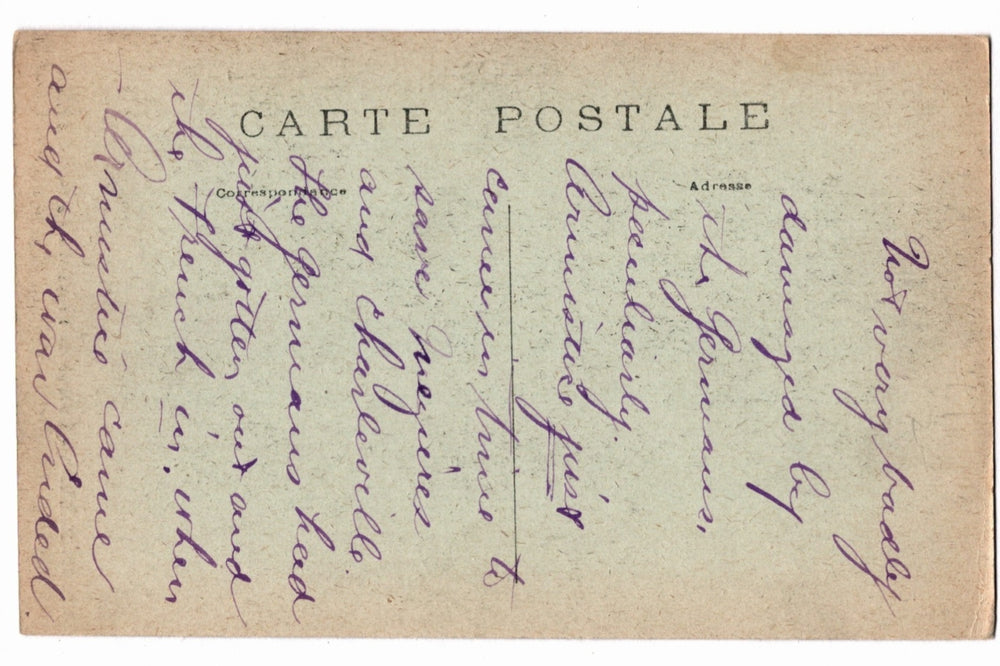 CARTE POSTALE
Correspondance
Adresse
Not very badly
damaged by
the Germans,
peculiarly.
Armistice just
came in time to
save Mezires
and Charleville.
The germans had
just gotten out and
the French in. when
Armistice came
and the war Ended.